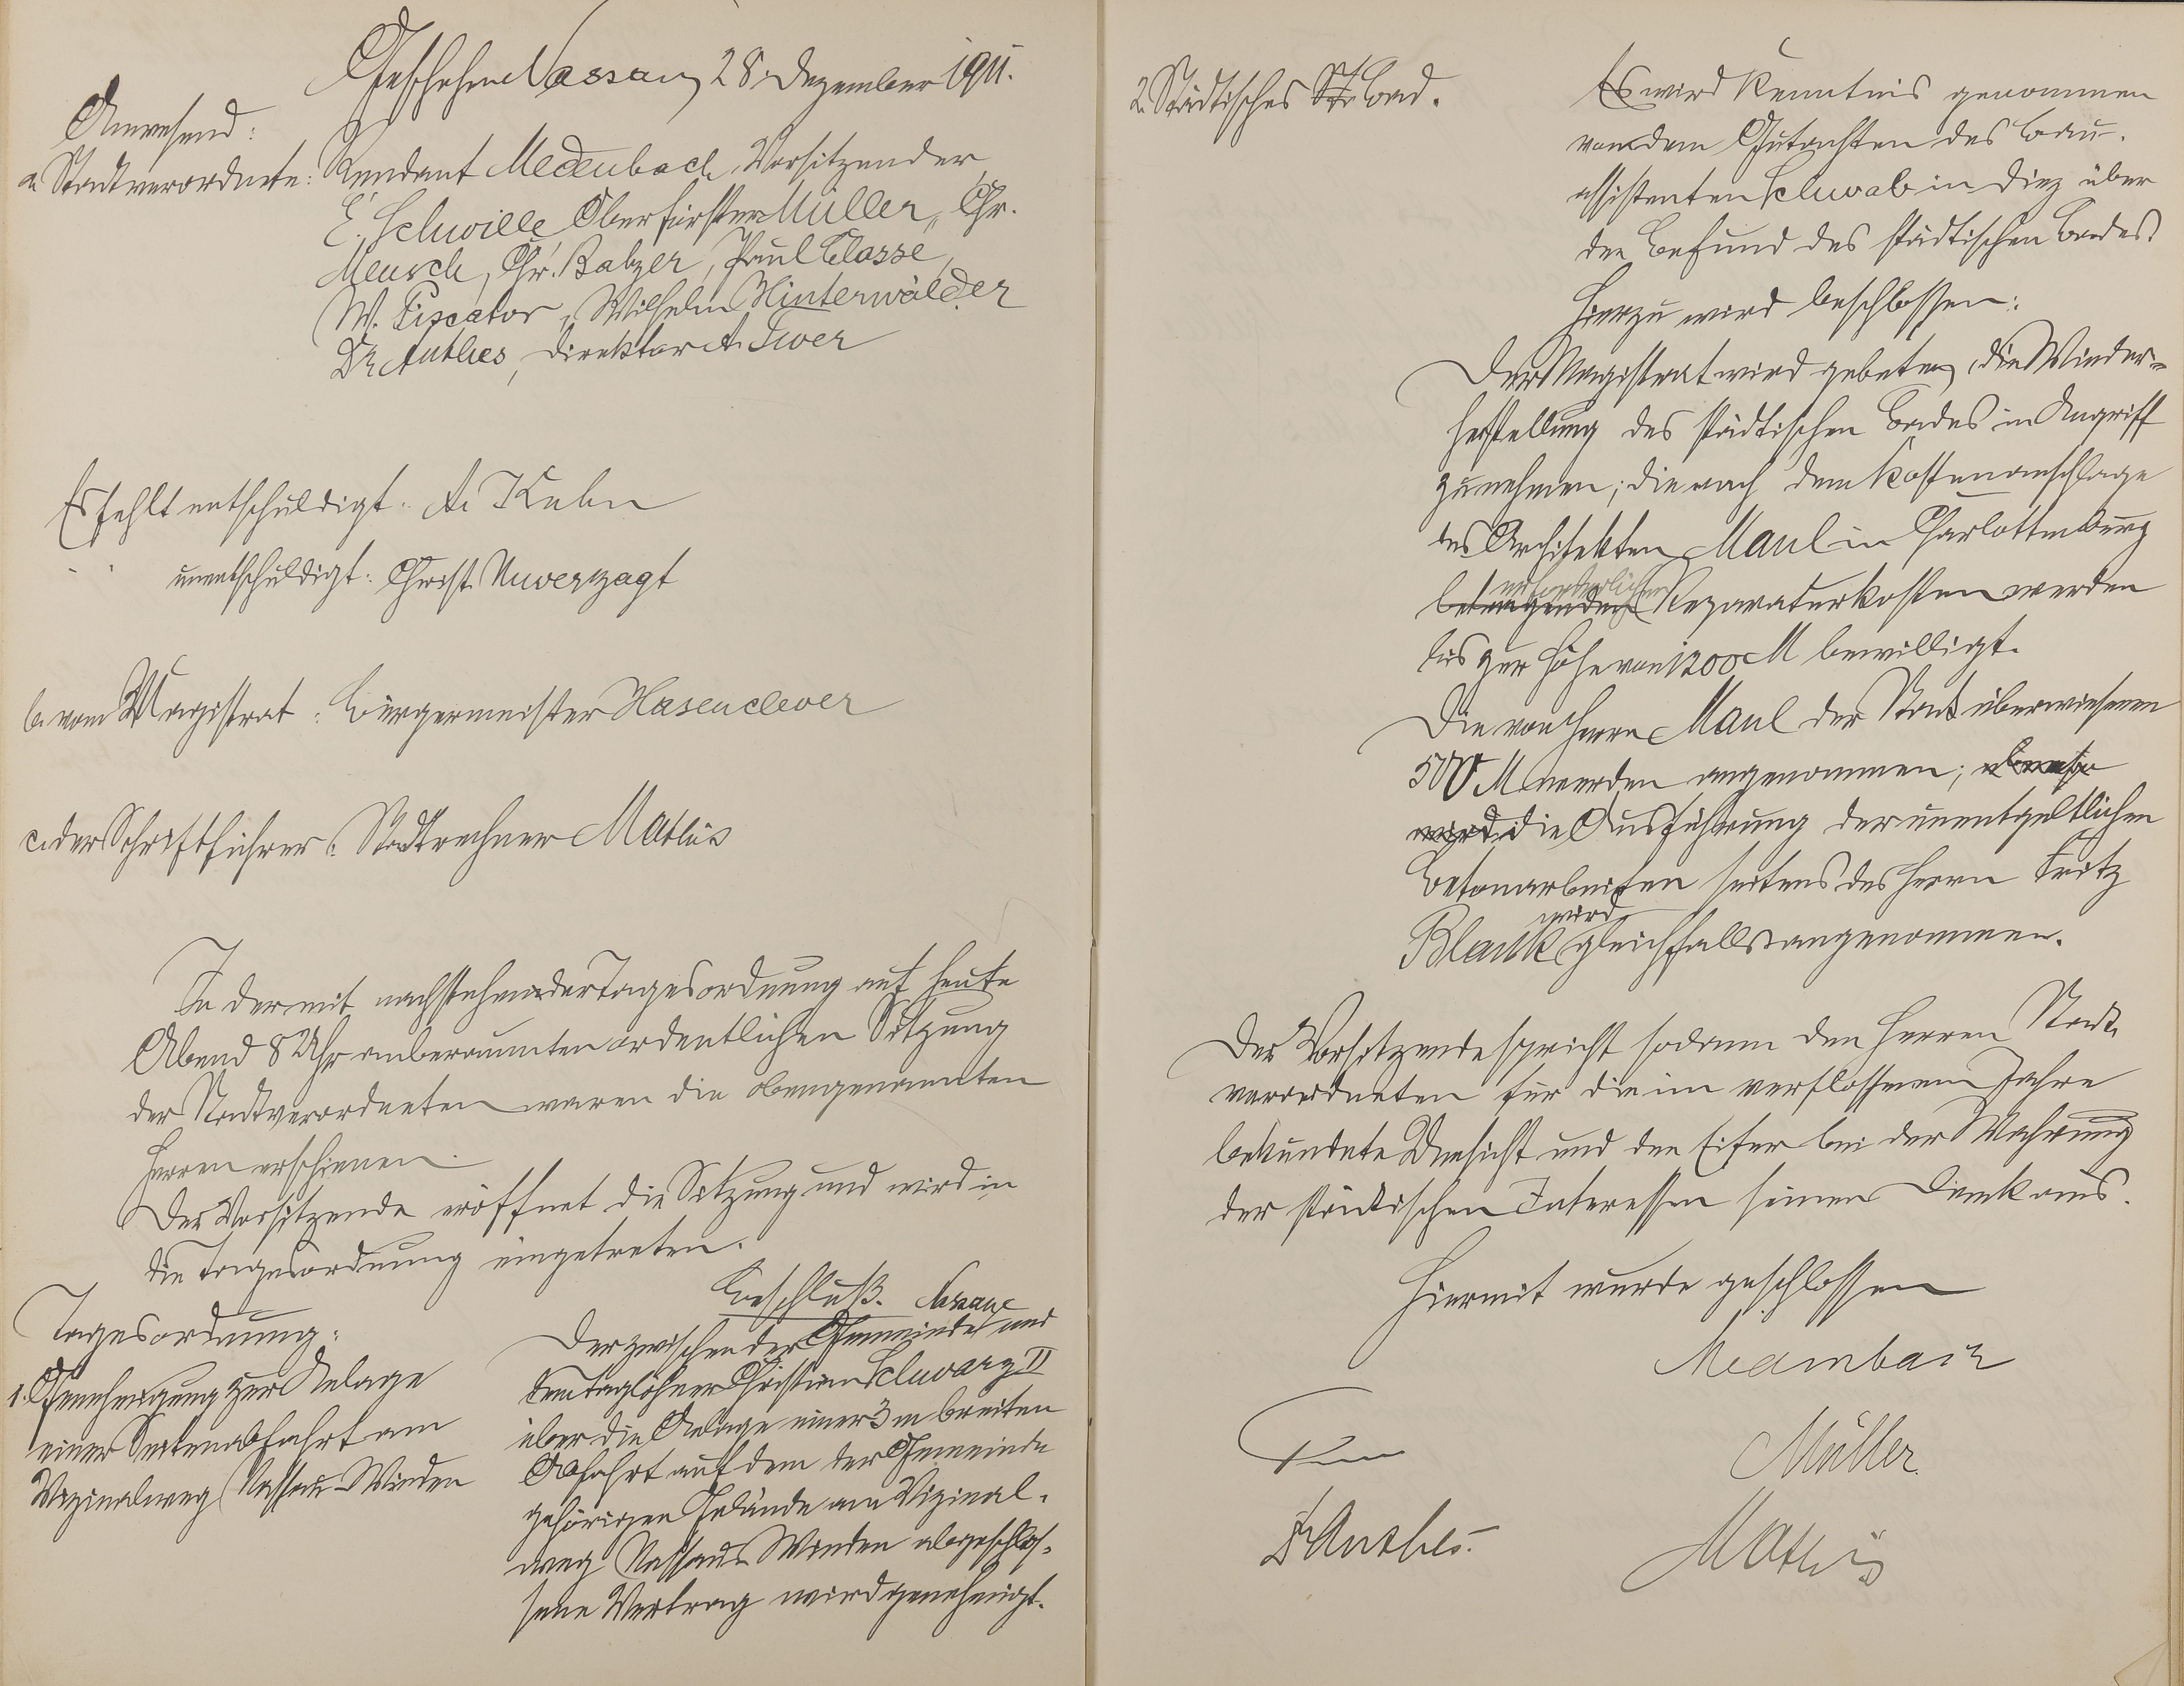 Geschehen Nassau, 28. Dezember 1911.
Anwesend:
a. Stadtverordnete: Rendant Medenbach Vorsitzender,
E. Schwille Oberförster Müller, Chr.
Meusch, Chr. Balzer, Paul Classe,
W. Piscator, Wilhelm Hinterwälder
Dr. Anthes, Direktor A. Twer
Es fehlt entschuldigt: A. Kuhn
" " unentschuldigt: Christ. Unverzagt
b. vom Magistrat: Bürgermeister Hasenclever
c. der Schriftführer: Stadtrechner Mathis
In der mit nachstehender Tagesordnung auf heute
Abend 8 Uhr anberaumten ordentlichen Sitzung
der Stadtverordneten waren die obengenannten
Herren erschienen.
Der Vorsitzende eröffnet die Sitzung und wird in
die Tagesordnung eingetreten.
Tagesordnung:
1. Genehmigung zur Anlage
einer Seitenabfahrt am
Vizinalweg Nassau-Winden
Beschluß.
Nassau
Der zwischen der Gemeinde und
dem Taglöhner Christian Schwarz II
über die Anlage einer 3 m breiten
Abfahrt auf dem der Gemeinde
gehörigen Gelände am Vizinal-
weg Nassau-Winden abgeschlos-
sene Vertrag wird genehmigt.
2. Städtisches Bad.
Es wird Kenntnis genommen
von dem Gutachten des Bau-
assistenten Schwab in Diez über
den Befund des städtischen Bades.
Hierzu wird beschlossen:
Der Magistrat wird gebeten, die Wieder-
herstellung des städtischen Bades in Angriff
zu nehmen; die nach dem Kostenanschlage
des Architekten Maul in Charlottenburg
erforderlichen
betragenden Reparaturkosten werden
bis zur Höhe von 1200 M bewilligt.
Die von Herrn Maul der Stadt überwiesenen
500 M werden angenommen; ebenso
wird die Ausführung der unentgeltlichen
Betonarbeiten seitens des Herrn Fritz
wird
Blank gleichfalls angenommen.
Der Vorsitzende spricht sodann den Herren Stadt-
verordneten für die im verflossenen Jahre
bekundete Umsicht und den Eifer bei der Wahrung
der städtischen Interessen seinen Dank aus.
Hiermit wurde geschlossen
Medenbach
Müller
Dr. Anthes.
Mathis